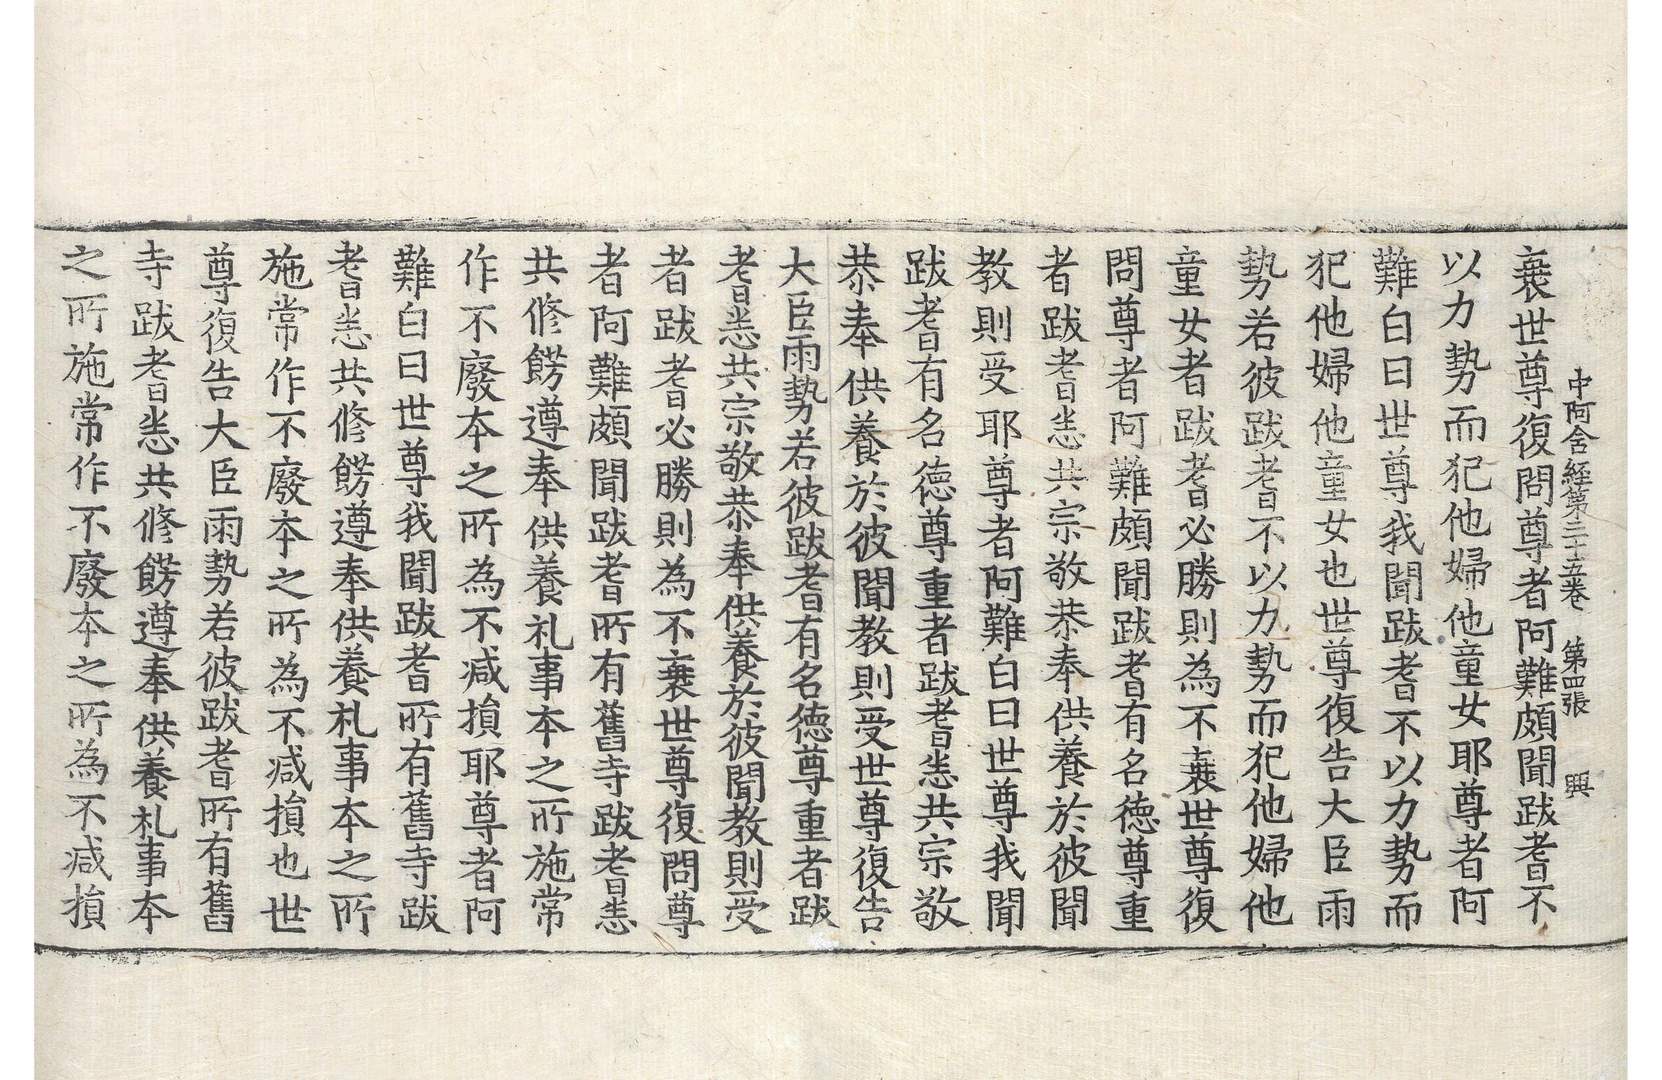 中阿含經第三十五卷 第四張 興
衰世尊復問尊者阿難頗聞跋耆不
以力勢而犯他婦他童女耶尊者阿
難白曰世尊我聞跋耆不以力勢而
犯他婦他童女也世尊復告大臣雨
勢若彼跋耆不以力勢而犯他婦他
童女者跋耆必勝則為不衰世尊復
問尊者阿難頗聞跋耆有名德尊重
者跋耆悉共宗敬恭奉供養於彼聞
教則受耶尊者阿難白曰世尊我聞
跋耆有名德尊重者跋耆悉共宗敬
恭奉供養於彼聞教則受世尊復告
大臣雨勢若彼跋耆有名德尊重者跋
耆悉共宗敬恭奉供養於彼聞教則受
者跋耆必勝則為不衰世尊復問尊
者阿難頗聞跋耆所有舊寺跋耆悉
共修餝遵奉供養礼事本之所施常
作不廢本之所為不減損耶尊者阿
難白曰世尊我聞跋耆所有舊寺跋
耆悉共修餝遵奉供養礼事本之所
施常作不廢本之所為不減損也世
尊復告大臣雨勢若彼跋耆所有舊
寺跋耆悉共修餝遵奉供養礼事本
之所施常作不廢本之所為不減損